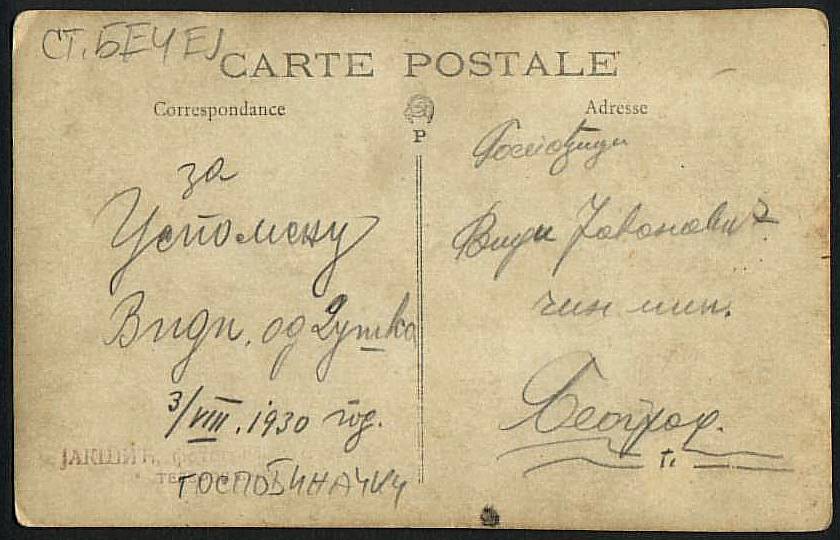 СТ. БЕЧЕЈ
CARTE POSTALE
Correspondance
Adresse
P
за
Успомену
Види, од Душка
3/VIII. 1930 год.
ЈАКШИЋ,
Госпођици
Види Јовановић
чин мин.
Београд.